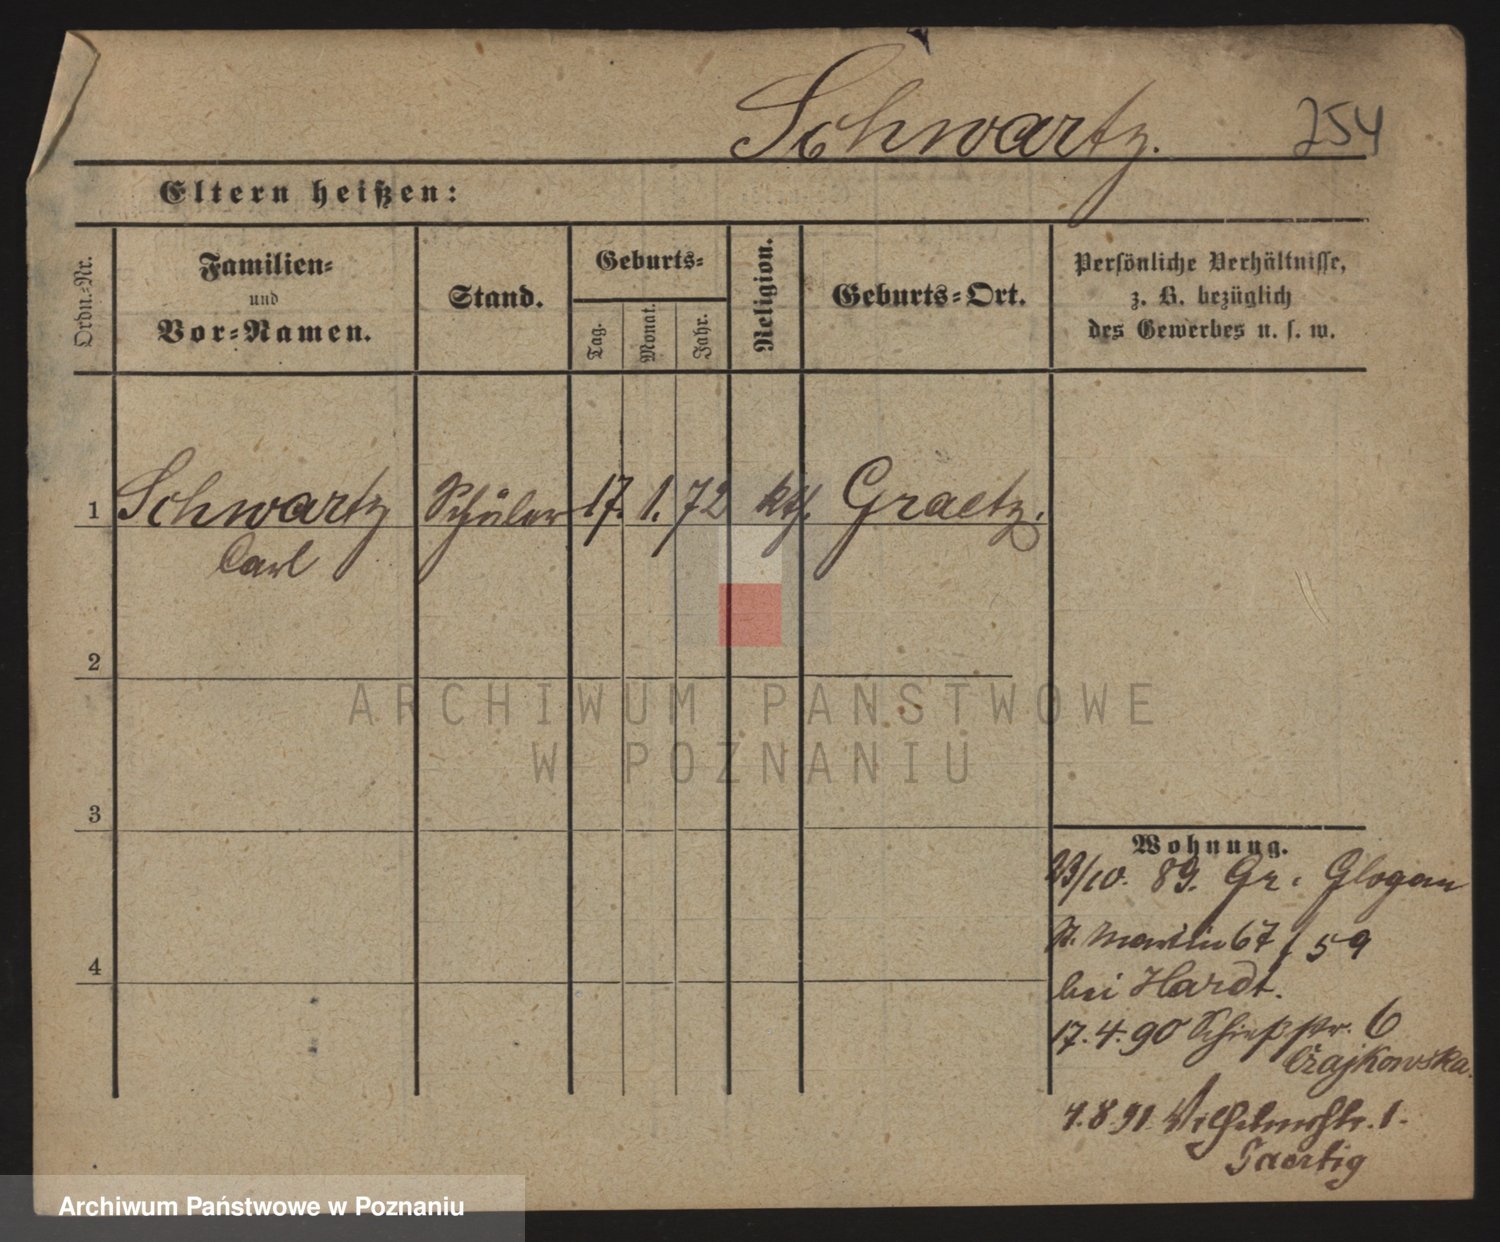 Schwartz. 254
Eltern heißen:
Ordn.-Nr.
Familien-
und
Vor-Namen.
Stand.
Geburts-
Tag.
Monat.
Jahr.
Religion.
Geburts-Ort.
Persönliche Verhältnisse,
z. B. bezüglich
des Gewerbes u. s. w.
1 Schwartz Schüler 17. 1. 72 kth. Graetz.
Carl
2
ARCHIWUM PAŃSTWOWE
W POZNANIU
3
Wohnung.
23/10. 89. Gr. Glogau
St. Martin 67 / 59
bei Hardt.
4
17. 4. 90 Schießstr. 6
Czajkowska.
4. 8. 91. Wilhelmstr. 1.
Archiwum Państwowe w Poznaniu